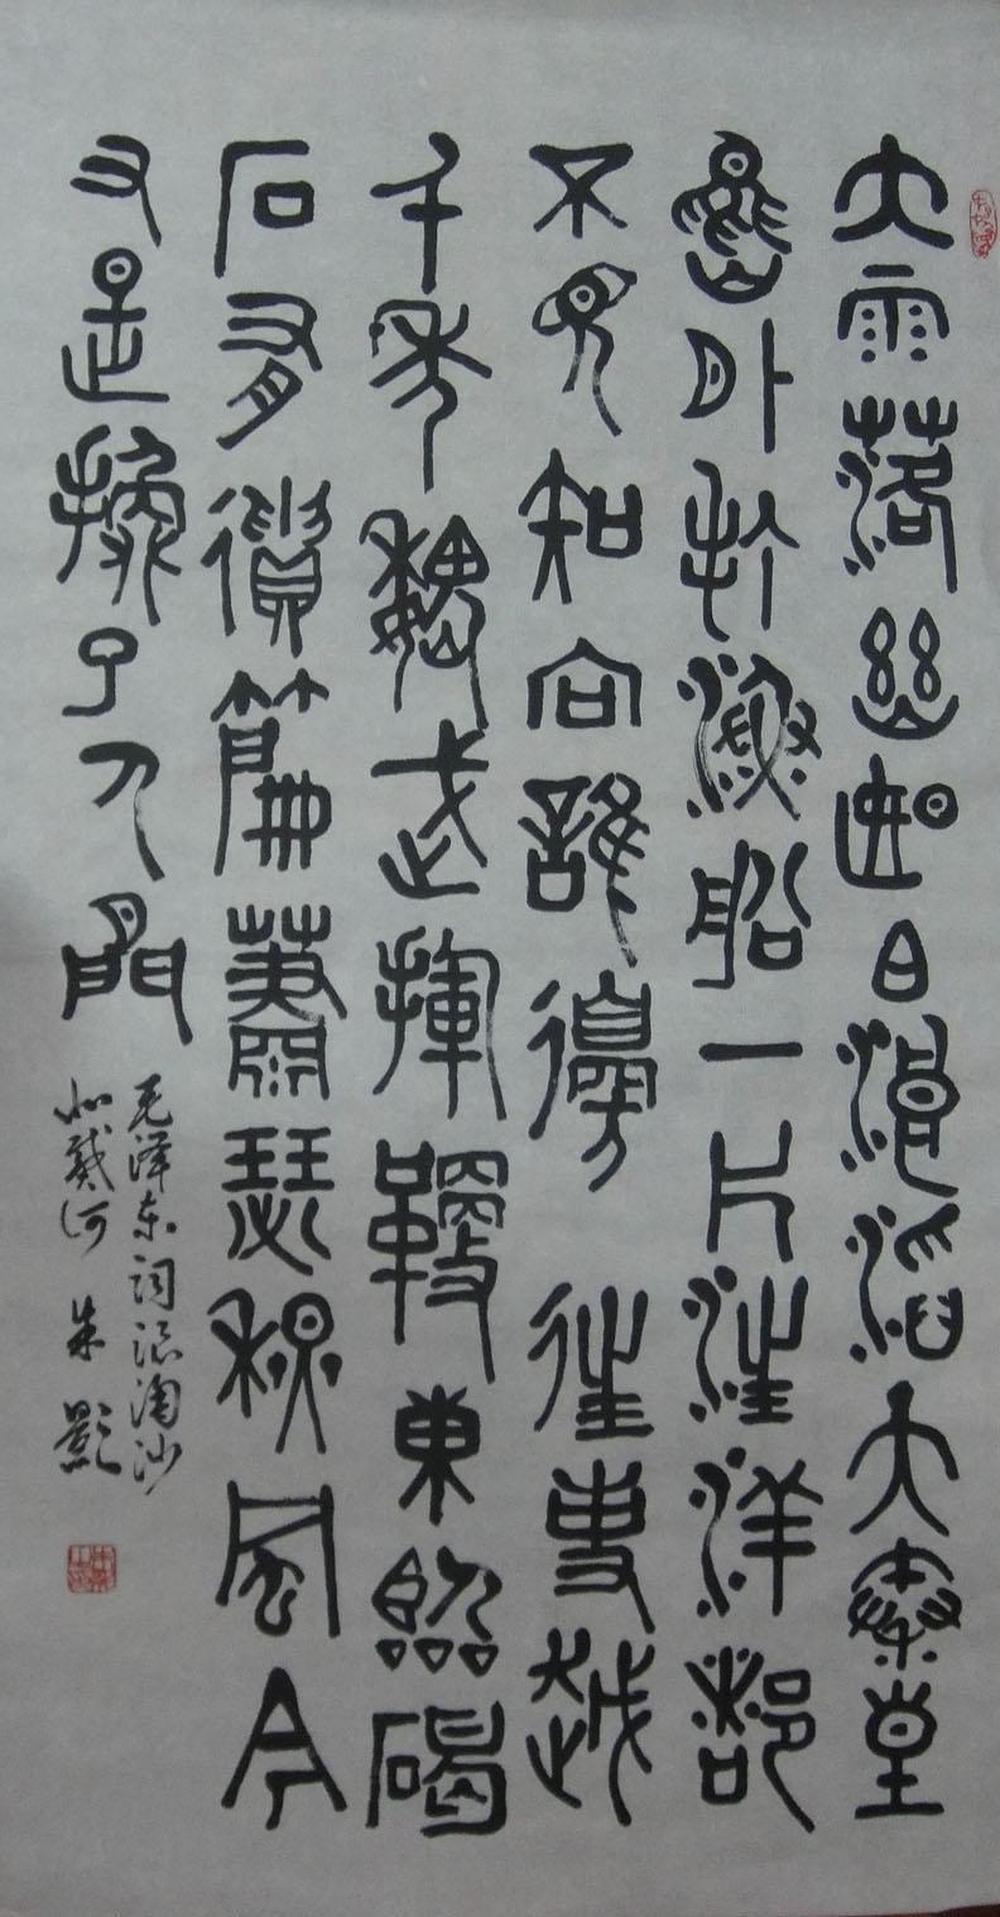 大雨落幽燕白浪滔天秦皇
島外打漁船一片汪洋都
不見知向誰邊 往事越
千年魏武揮鞭東臨碣
石有遺篇蕭瑟秋風今
又是換了人間
毛泽东词浪淘沙
北戴河 朱影